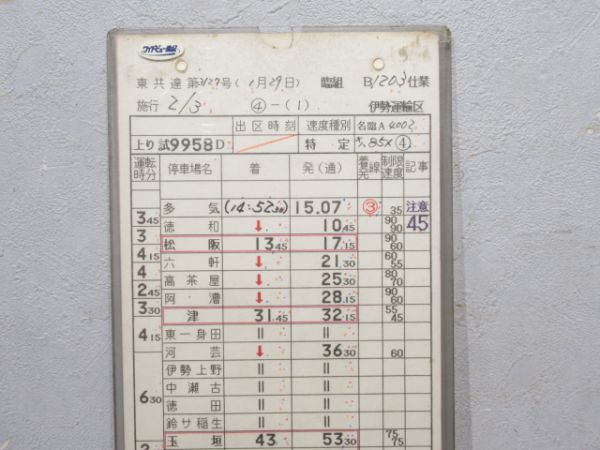 ワイドビュー南紀
東共達第2127号(1月29日) 臨組 B1203仕業
施行 2/3 ④-(1) 伊勢運輸区
出区時刻 速度種別 名臨A4002
上り試9958D 特定 キハ85X④
運転時分 停車場名 着 発(通) 着発線 制限速度 記事
多気 (14:52 30) 15.07 ③ 35 注意
3 45 徳和 ↓ 10 45 90 90 45
3 松阪 13 45 17 15 90 60
4 15 六軒 ↓ 21 30 60 55
4 高茶屋 ↓ 25 30 80 70
2 45 阿漕 ↓ 28 15 90 60
3 30 津 31 45 32 15 55 45
4 15 東一身田 〃 〃
河芸 ↓ 36 30 60
伊勢上野 〃 〃
6 30 中瀬古 〃 〃
徳田 〃 〃
鈴サ稲生 〃 〃
玉垣 43 53 30 75 75